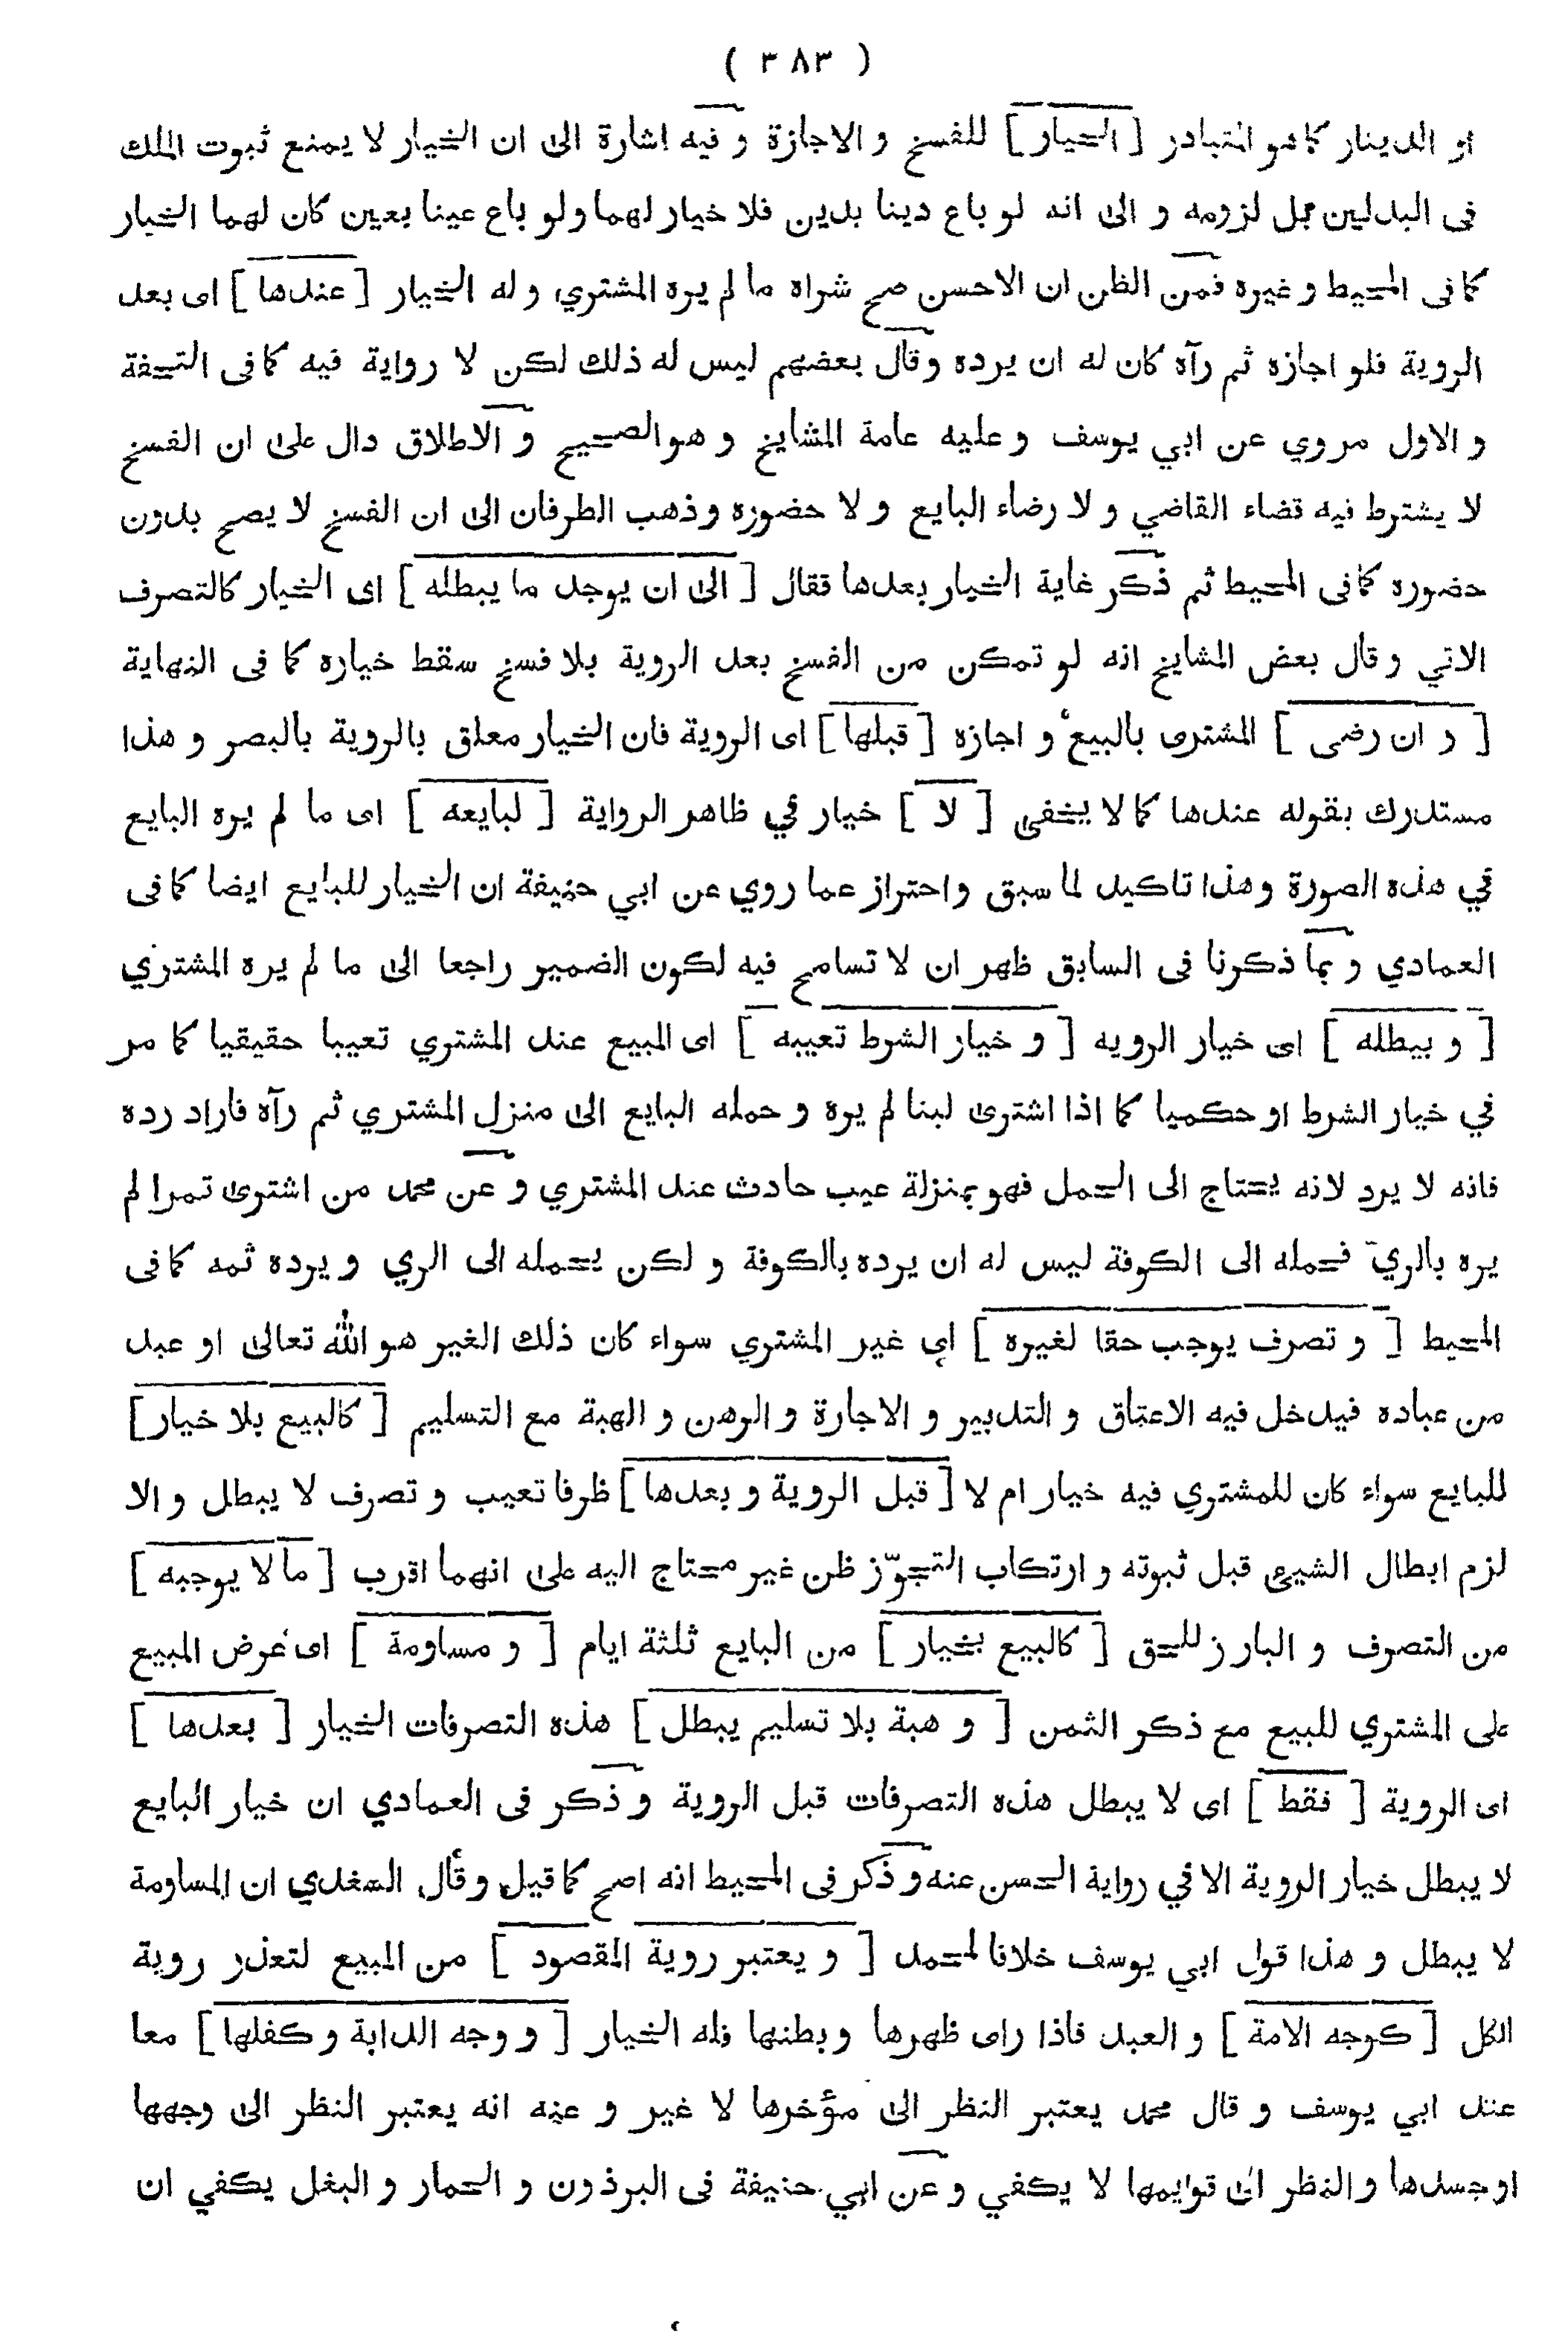 ( ٣٨٣ )
او الدينار كما هو المتبادر [ الخيار ] للفسخ و الاجازة و فيه اشارة الى ان الخيار لا يمنع ثبوت الملك
فى البدلين بل لزومه و الى انه لو باع دينا بدين فلا خيار لهما ولو باع عينا بعين كان لهما الخيار
كما فى المحيط و غيره فمن الظن ان الاحسن صح شراه ما لم يره المشتري و له الخيار [ عندها ] اى بعد
الروية فلو اجازه ثم رآه كان له ان يرده و قال بعضهم ليس له ذلك لكن لا رواية فيه كما فى التحفة
و الاول مروي عن ابي يوسف و عليه عامة المشايخ و هو الصحيح و الاطلاق دال على ان الفسخ
لا يشترط فيه قضاء القاضي و لا رضاء البايع و لا حضوره و ذهب الطرفان الى ان الفسخ لا يصح بدون
حضوره كما فى المحيط ثم ذكر غاية الخيار بعدها فقال [ الى ان يوجد ما يبطله ] اى الخيار كالتصرف
الاتي و قال بعض المشايخ انه لو تمكن من الفسخ بعد الروية بلا فسخ سقط خياره كما فى النهاية
[ و ان رضى ] المشترى بالبيع و اجازه [ قبلها ] اى الروية فان الخيار معلق بالروية بالبصر و هذا
مستدرك بقوله عندها كما لا يخفى [ لا ] خيار في ظاهر الرواية [ لبايعه ] اى ما لم يره البايع
في هذه الصورة و هذا تاكيد لما سبق و احتراز عما روي عن ابي حنيفة ان الخيار للبايع ايضا كما فى
العمادي و بما ذكرنا فى السابق ظهر ان لا تسامح فيه لكون الضمير راجعا الى ما لم يره المشتري
[ و يبطله ] اى خيار الرويه [ و خيار الشرط تعيبه ] اى المبيع عند المشتري تعيبا حقيقيا كما مر
في خيار الشرط او حكميا كما اذا اشترى لبنا لم يره و حمله البايع الى منزل المشتري ثم رآه فاراد رده
فانه لا يرد لانه يحتاج الى الحمل فهو بمنزلة عيب حادث عند المشتري و عن محمد من اشترى تمرا لم
يره بالري فحمله الى الكوفة ليس له ان يرده بالكوفة و لكن يحمله الى الري و يرده ثمه كما فى
المحيط [ و تصرف يوجب حقا لغيره ] اي غير المشتري سواء كان ذلك الغير هو الله تعالى او عبد
من عباده فيدخل فيه الاعتاق و التدبير و الاجارة و الرهن و الهبة مع التسليم [ كالبيع بلا خيار ]
للبايع سواء كان للمشتري فيه خيار ام لا [ قبل الروية و بعدها ] ظرفا تعيب و تصرف لا يبطل و الا
لزم ابطال الشيئ قبل ثبوته و ارتكاب التجوّز ظن غير محتاج اليه على انهما اقرب [ ما لا يوجبه ]
من التصرف و البارز للحق [ كالبيع بخيار ] من البايع ثلثة ايام [ و مساومة ] اى عرض المبيع
على المشتري للبيع مع ذكر الثمن [ و هبة بلا تسليم يبطل ] هذه التصرفات الخيار [ بعدها ]
اى الروية [ فقط ] اى لا يبطل هذه التصرفات قبل الروية و ذكر فى العمادي ان خيار البايع
لا يبطل خيار الروية الا في رواية الحسن عنه و ذكر فى المحيط انه اصح كما قيل و قال السغدي ان المساومة
لا يبطل و هذا قول ابي يوسف خلافا لمحمد [ و يعتبر روية المقصود ] من المبيع لتعذر روية
الكل [ كوجه الامة ] و العبد فاذا راى ظهرها و بطنها فله الخيار [ و وجه الدابة و كفلها ] معا
عند ابي يوسف و قال محمد يعتبر النظر الى مؤخرها لا غير و عنه انه يعتبر النظر الى وجهها
او جسدها و النظر الى قوايمها لا يكفي و عن ابي حنيفة فى البرذون و الحمار و البغل يكفي ان